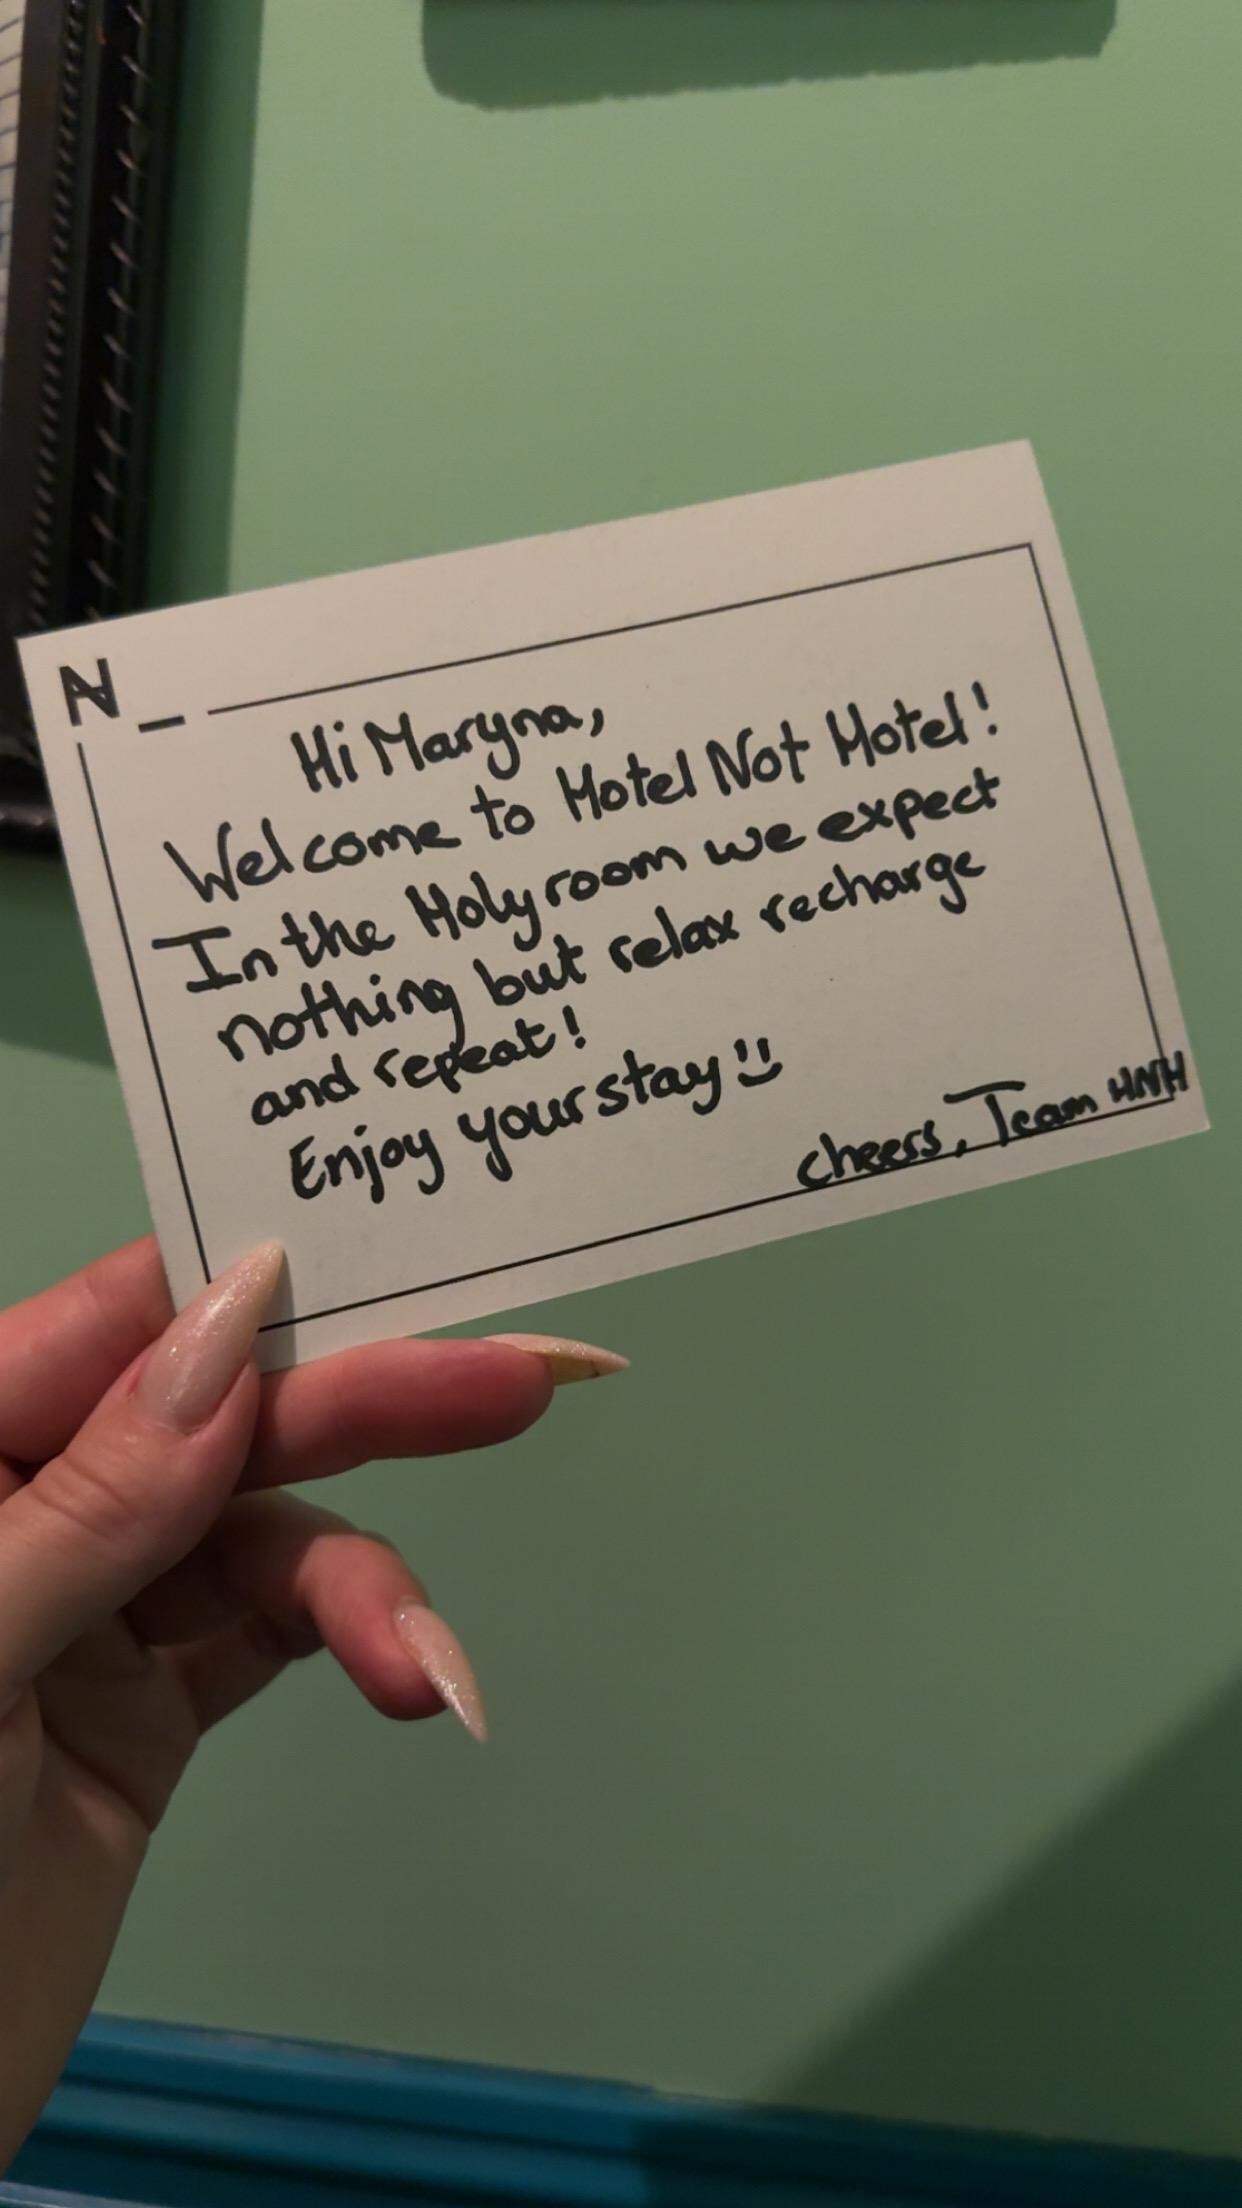 N
Hi Maryna,
Welcome to Hotel Not Hotel!
In the Holy room we expect
nothing but relax recharge
and repeat!
Enjoy your stay
cheers, Team HNH